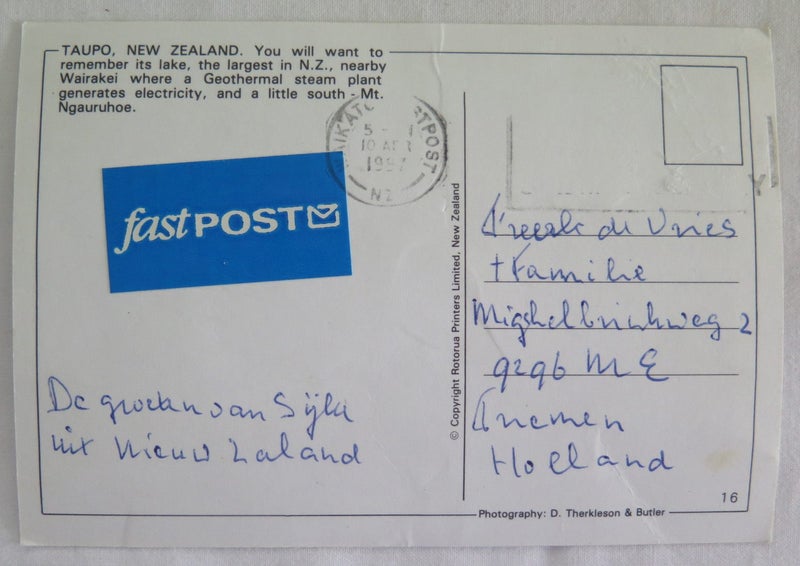 TAUPO, NEW ZEALAND. You will want to
remember its lake, the largest in N.Z., nearby
Wairakei where a Geothermal steam plant
generates electricity, and a little south - Mt.
Ngauruhoe.
5 -
10 APR
1997
NZ
fastPOST
© Copyright Rotorua Printers Limited, New Zealand
de Vries
+ Familie
2
9296 ME
Holland
De groeten van Sijke
uit Nieuw Zaland
16
Photography: D. Therkleson & Butler